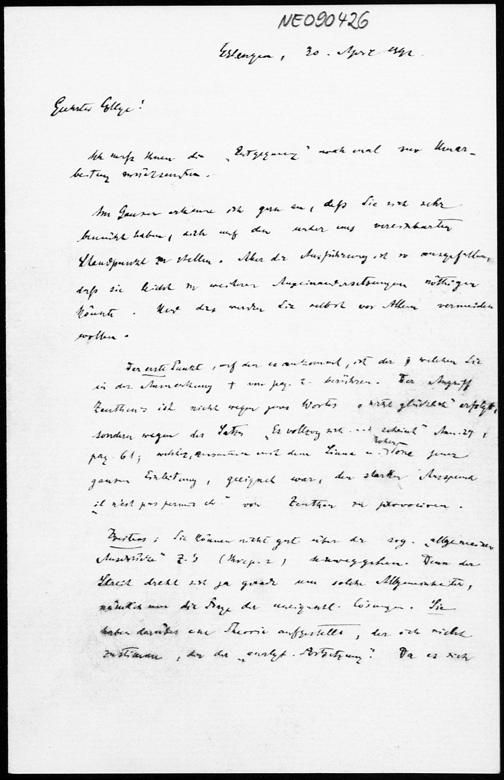 NE090426
Erlangen, 30. April 1892.
Geehrter College!
Ich muß Ihnen die „Entgegnung" noch einmal zur Umar-
beitung zurücksenden.
Im Ganzen erkenne ich gern an, daß Sie sich sehr
bemüht haben, sich auf den unter uns vereinbarten
Standpunkt zu stellen. Aber die Ausführung ist so ausgefallen,
daß sie leicht zu weiteren Auseinandersetzungen nöthigen
könnte. Und das werden Sie selbst vor Allem vermeiden
wollen.
Der erste Punkt, auf den es ankommt, ist der welchen Sie
in der Anmerkung + von pag. 2. berühren. Der Angriff
Zeuthens ist nicht wegen jenes Wortes „nicht glücklich" erfolgt,
sondern wegen des Satzes „Es vollzog sich scheint"
pag. 61, welcher, zusammen mit dem Sinne u. Tone jener
ganzen Einleitung, geeignet war, den starken Ausspruch
il n'est pas permis etc" von Zeuthen zu provociren.
Zweitens: Sie können nicht gut über die sog. „allgemeinen
Ausdrücke" Z.'s hinweggehen. Denn der
Streit dreht sich ja gerade um solche Allgemeinheiten,
nämlich um die Frage der uneigentl. Lösungen. Sie
haben darüber eine Theorie aufgestellt, der ich nicht
zustimme, die der Da es sich